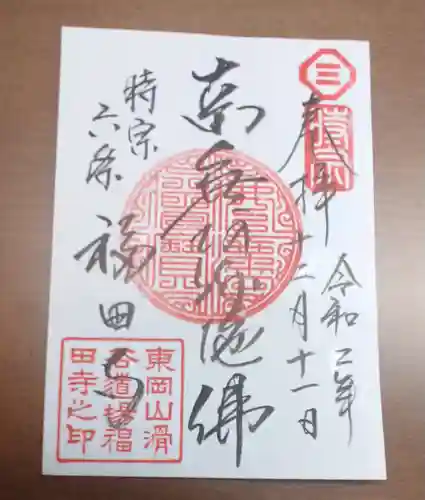 奉拝
令和二年
十二月十一日
南無阿弥陀佛
時宗
六条
福田寺
東岡山滑
谷道場福
田寺之印